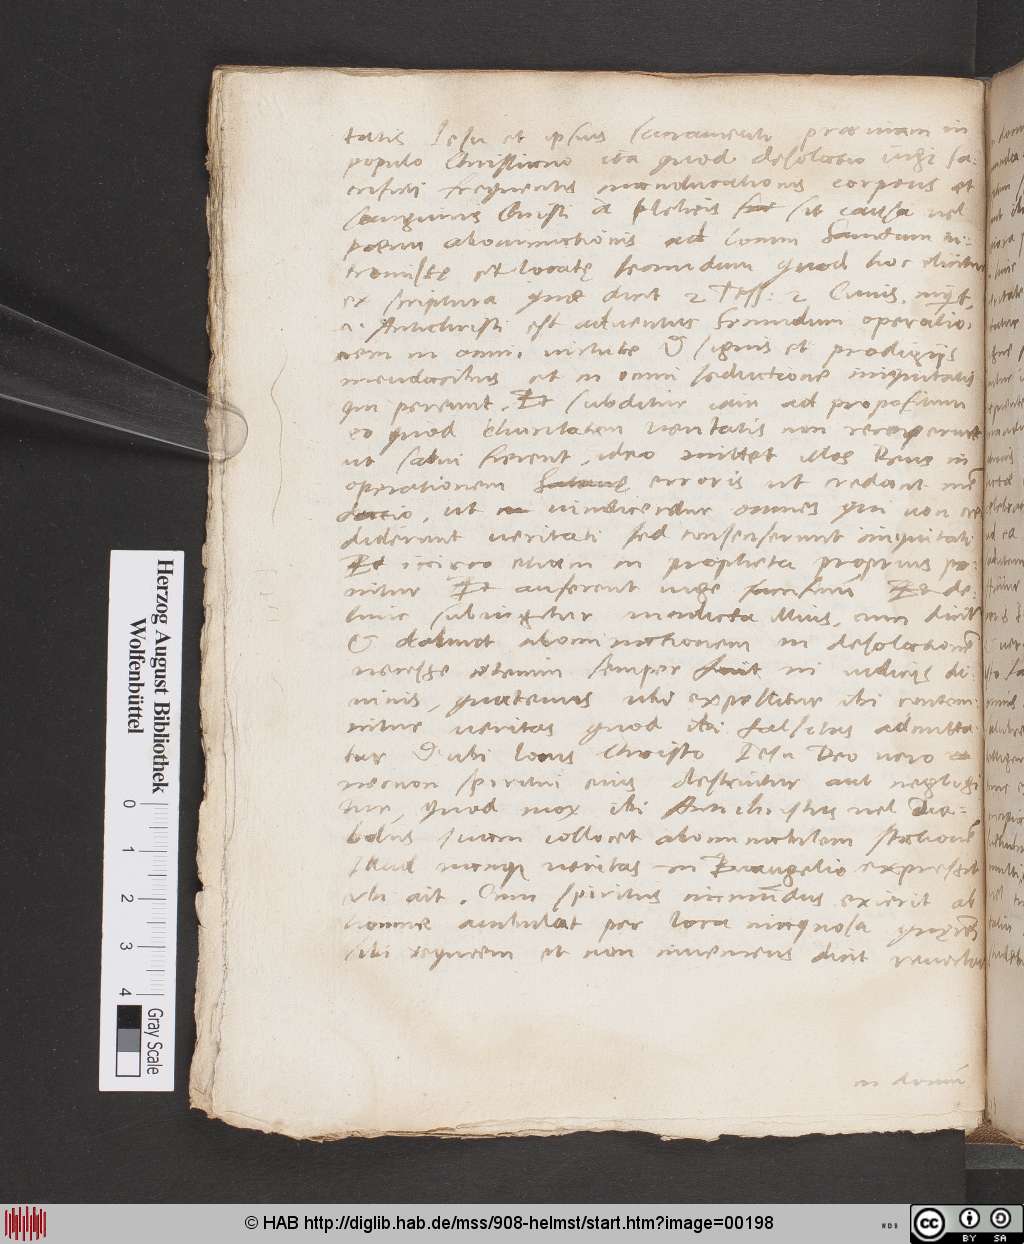 tatis Iesu et ipsius sacramento præviam in
populo Christiano ita quod desolatio iugi sa-
crificii frequentis manducationis corporis et
sanguinis Christi a plebeis sit causa vel
abominationis ad locum sanctum
et locatę secundum quod hoc elicitur
ex scriptura quæ dicit 2 Tess: 2 Cuius,
Antichristi est adventus secundum operatio-
nem in omni virtute & signis et prodigiis
mendacibus et in omni seductione iniquitatis
qui pereunt. Et subditur iam ad propositum
eo quod charitatem veritatis non receperunt
ut salvi fierent, ideo mittet illos Deus in
operationem Satanę erroris ut credant men
dacio, ut vindicentur omnes qui non cre
diderunt veritati sed consenserunt iniquitati
Et iccirco etiam in propheta proprius po-
nitur Et auferent iuge sacrificiū Et de-
hinc subiungitur maledicta illius, cum dicit
& dabunt abominationem in desolationē
necesse etenim semper fuit in iudiciis di-
vinis, quatenus ubi expellitur ibi contem
nitur veritas quod ibi falsitas admitta
tur & ubi locus Christo Iesu Deo vero
necnon spiritui eius destruitur aut negligi
tur, quod mox ibi Antichristus vel Dia-
bolus suam collocet abominabilem stationē
Illud namque veritas in Evangelio expressit
ubi ait. Cum spiritus immūdus exierit ab
homine ambulat per loca inaquosa quęrēs
sibi requiem et non inveniens dicit revertar
in domū
Herzog August Bibliothek
Wolfenbüttel
0 1 2 3 4
Gray Scale
© HAB http://diglib.hab.de/mss/908-helmst/start.htm?image=00198
WDB
cc
BY SA